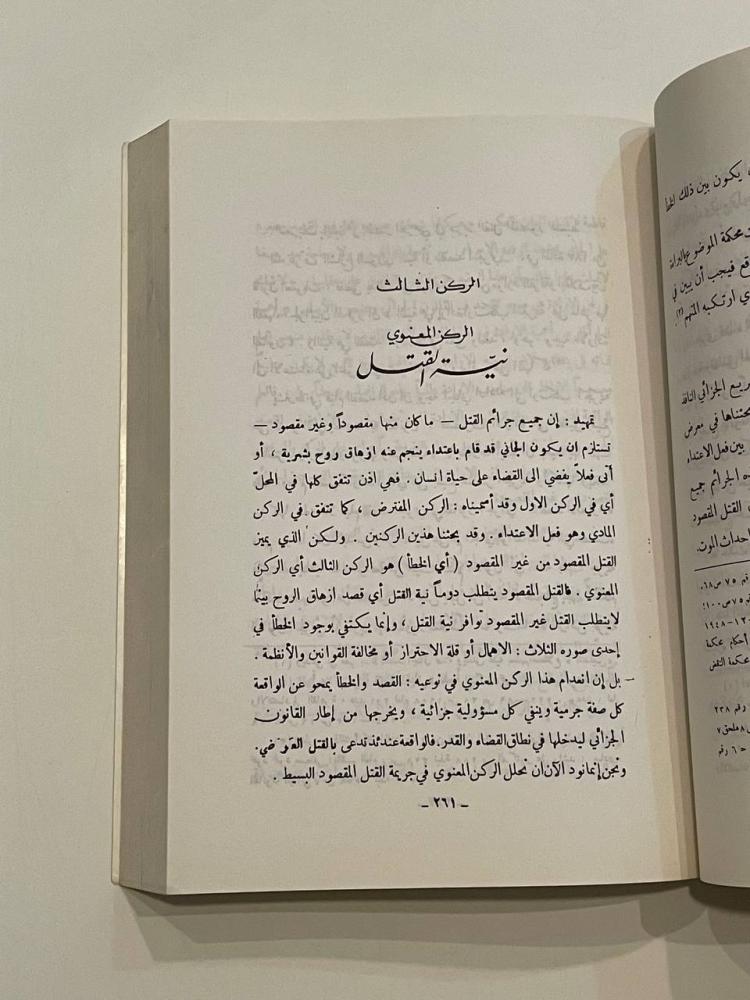 الركن الثالث
الركن المعنوي
نيّة القتل
تمهيد : إن جميع جرائم القتل – ما كان منها مقصوداً وغير مقصود –
تستلزم ان يكون الجاني قد قام باعتداء ينجم عنه ازهاق روح بشرية ، أو
أتى فعلاً يفضي الى القضاء على حياة انسان . فهي اذن تتفق كلها في المحلّ
أي في الركن الاول وقد أسميناه : الركن المفترض ، كما تتفق في الركن
المادي وهو فعل الاعتداء . وقد بحثنا هذين الركنين . ولكن الذي يميز
القتل المقصود من غير المقصود ( أي الخطأ ) هو الركن الثالث أي الركن
المعنوي . فالقتل المقصود يتطلب دوماً نية القتل أي قصد ازهاق الروح بينما
لايتطلب القتل غير المقصود توافر نية القتل ، وإنما يكتفي بوجود الخطأ في
إحدى صوره الثلاث : الاهمال أو قلة الاحتراز أو مخالفة القوانين والأنظمة .
– بل إن انعدام هذا الركن المعنوي في نوعيه : القصد والخطأ يمحو عن الواقعة
كل صفة جرمية وينفي كل مسؤولية جزائية ، ويخرجها من إطار القانون
الجزائي ليدخلها في نطاق القضاء والقدر. فالواقعة عندئذ تدعى بالقتل العرضي.
ونحن إنما نود الآن ان نحلل الركن المعنوي في جريمة القتل المقصود البسيط .
– ٢٦١ –
يكون بين ذلك الخطأ
محكمة الموضوع بالبراءة
فيجب أن يبين في
ارتكبه المتهم (٢).
الجزائي النافذ
بحثناها في معرض
بين فعل الاعتداء
الجرائم جميع
القتل المقصود
احداث الموت.
رقم ٧٥ ص ٦٨.
٧٥ ص ١٠٠؛
١٩٤٨
أحكام محكمة
محكمة النقض
رقم ٢٣٨
٨ ملحق ٧
٦ رقم